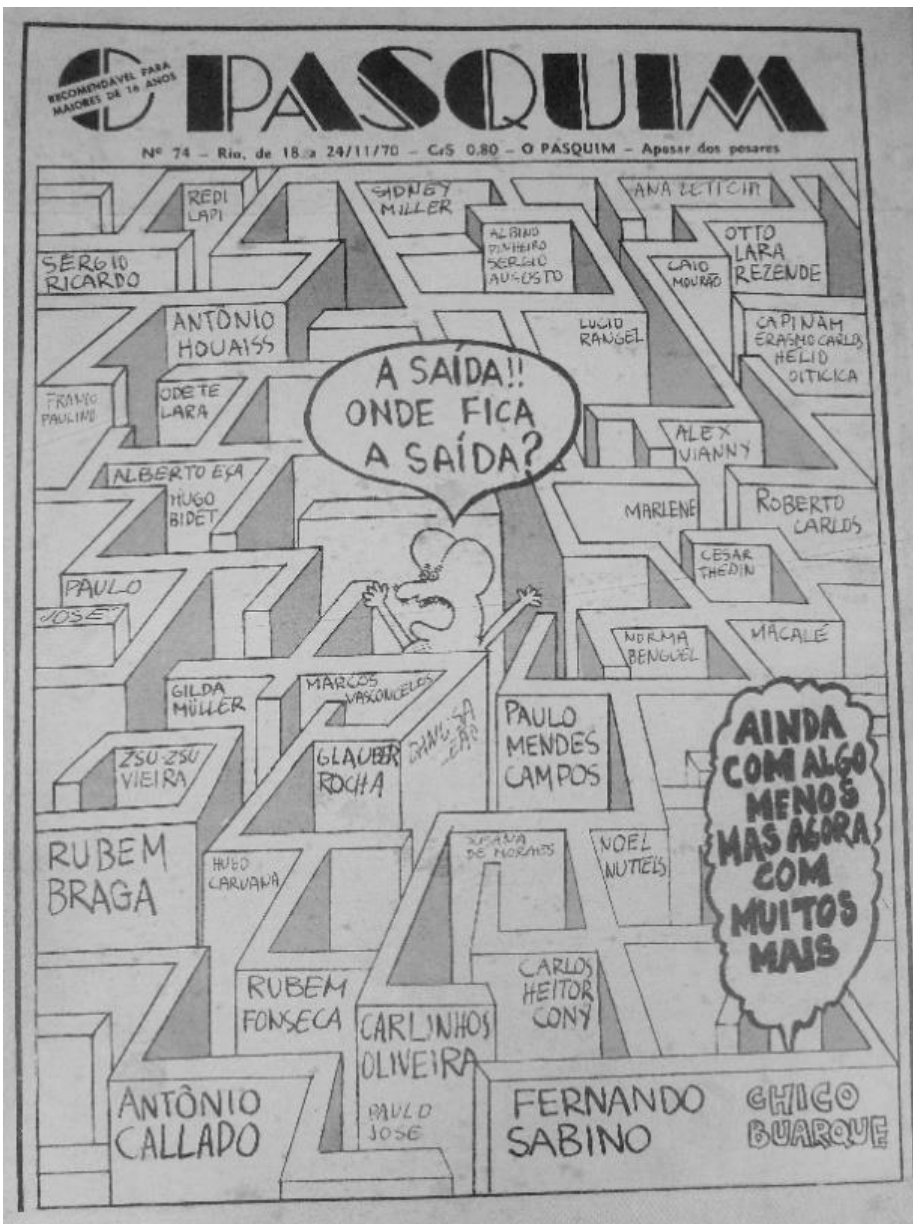 O PASQUIM
RECOMENDÁVEL PARA
MAIORES DE 16 ANOS
Nº 74 – Rio, de 18 a 24/11/70 – Cr$ 0,80 – O PASQUIM – Apesar dos pesares
REDI
LAPI
SIDNEY
MILLER
ANA LETÍCIA
SÉRGIO
RICARDO
ALBINO
PINHEIRO
SERGIO
AUGUSTO
CAIO
MOURÃO
OTTO
LARA
REZENDE
ANTÔNIO
HOUAISS
LUCIO
RANGEL
CAPINAM
ERASMO CARLOS
HELIO
OITICICA
FRANCO
PAULINO
ODETE
LARA
A SAÍDA!!
ONDE FICA
A SAÍDA?
ALEX
VIANNY
ALBERTO EÇA
HUGO
BIDET
MARLENE
ROBERTO
CARLOS
CESAR
THEDIN
PAULO
JOSÉ
NORMA
BENGUEL
MACALÉ
GILDA
MÜLLER
MARCOS
VASCONCELOS
ZSU-ZSU
VIEIRA
GLAUBER
ROCHA
PAULO
MENDES
CAMPOS
AINDA
COM ALGO
MENOS
MAS AGORA
COM
MUITOS
MAIS
RUBEM
BRAGA
HUGO
CARVANA
DE MORAES
NOEL
NUTTELS
RUBEM
FONSECA
CARLINHOS
OLIVEIRA
PAULO
JOSE
CARLOS
HEITOR
CONY
ANTÔNIO
CALLADO
FERNANDO
SABINO
CHICO
BUARQUE